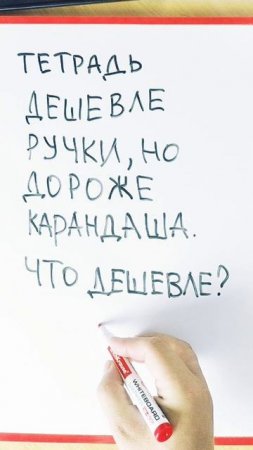 ТЕТРАДЬ
ДЕШЕВЛЕ
РУЧКИ, НО
ДОРОЖЕ
КАРАНДАША.
ЧТО ДЕШЕВЛЕ?
WHITEBOARD